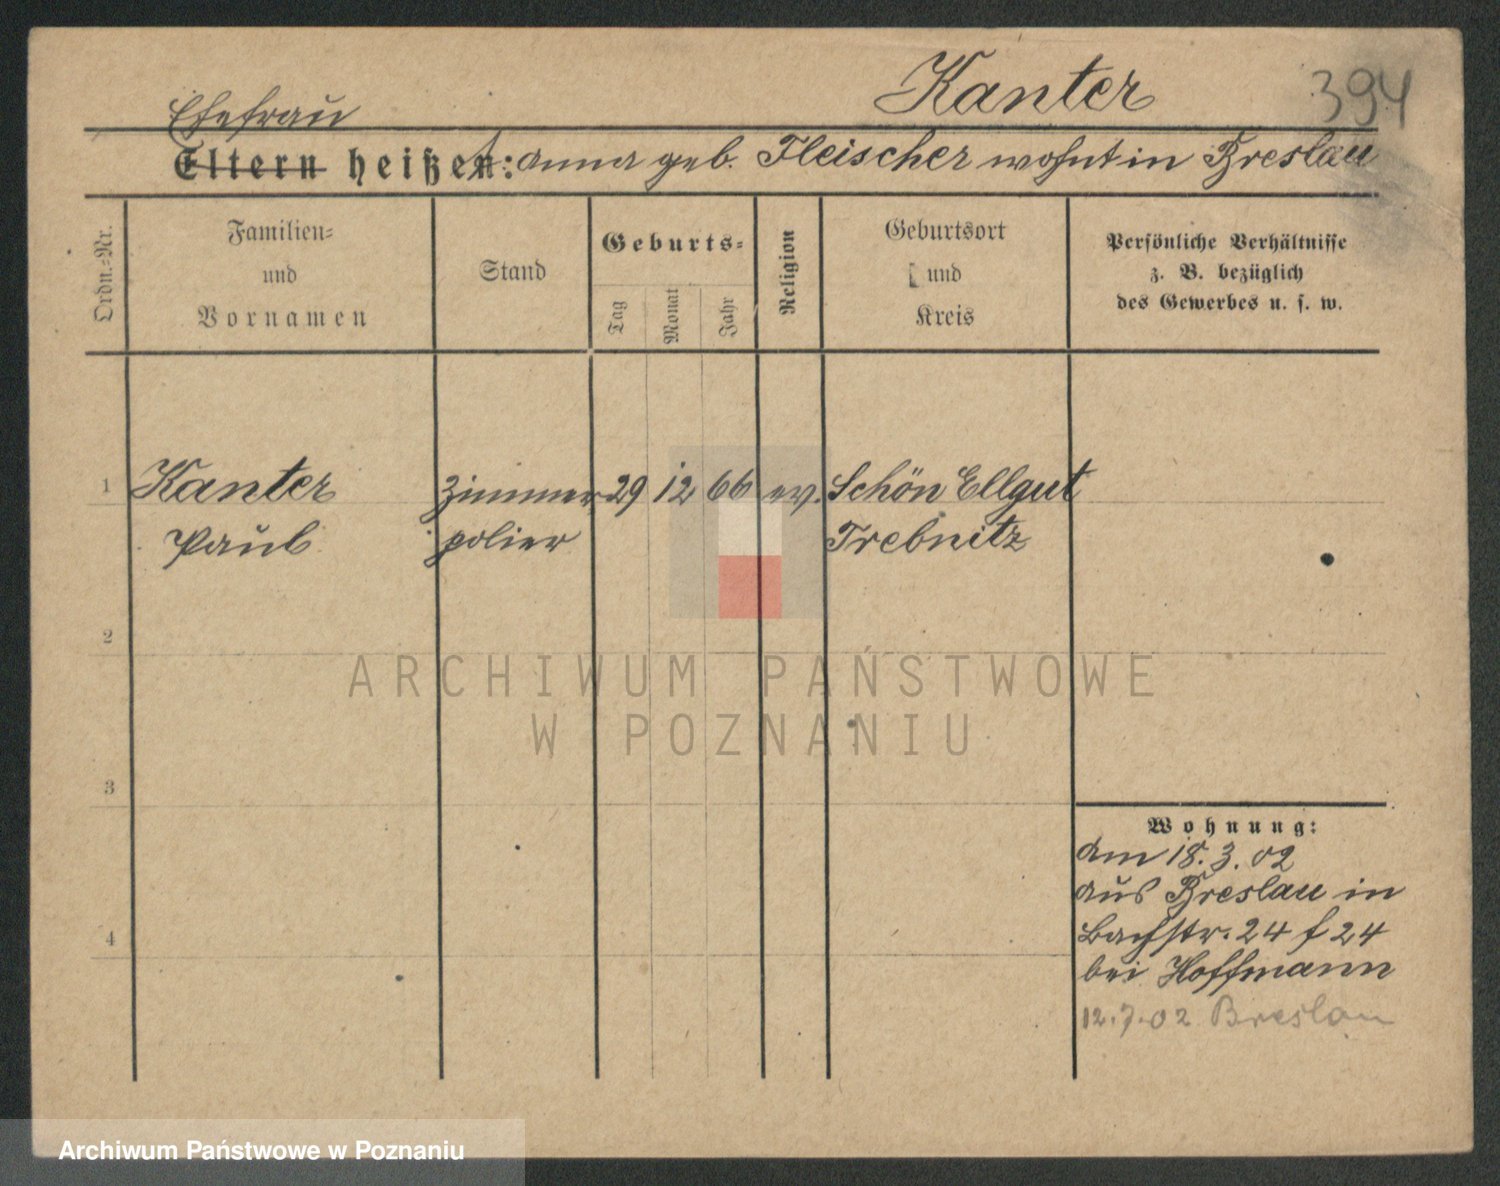 Kanter 394
Ehefrau
Eltern heißen: Anna geb. Fleischer wohnt in Breslau
Ordn.-Nr.
Familien-
und
Vornamen
Stand
Geburts-
Tag
Monat
Jahr
Religion
Geburtsort
und
Kreis
Persönliche Verhältnisse
z. B. bezüglich
des Gewerbes u. s. w.
1 Kanter Zimmer 29 12 66 ev. Schön Ellgut
Paul polier Trebnitz
2
3
4
Wohnung:
Am 18.3.02
aus Breslau in
Bachstr. 24 f 24
bei Hoffmann
12.7.02 Breslau
ARCHIWUM PAŃSTWOWE
W POZNANIU
Archiwum Państwowe w Poznaniu